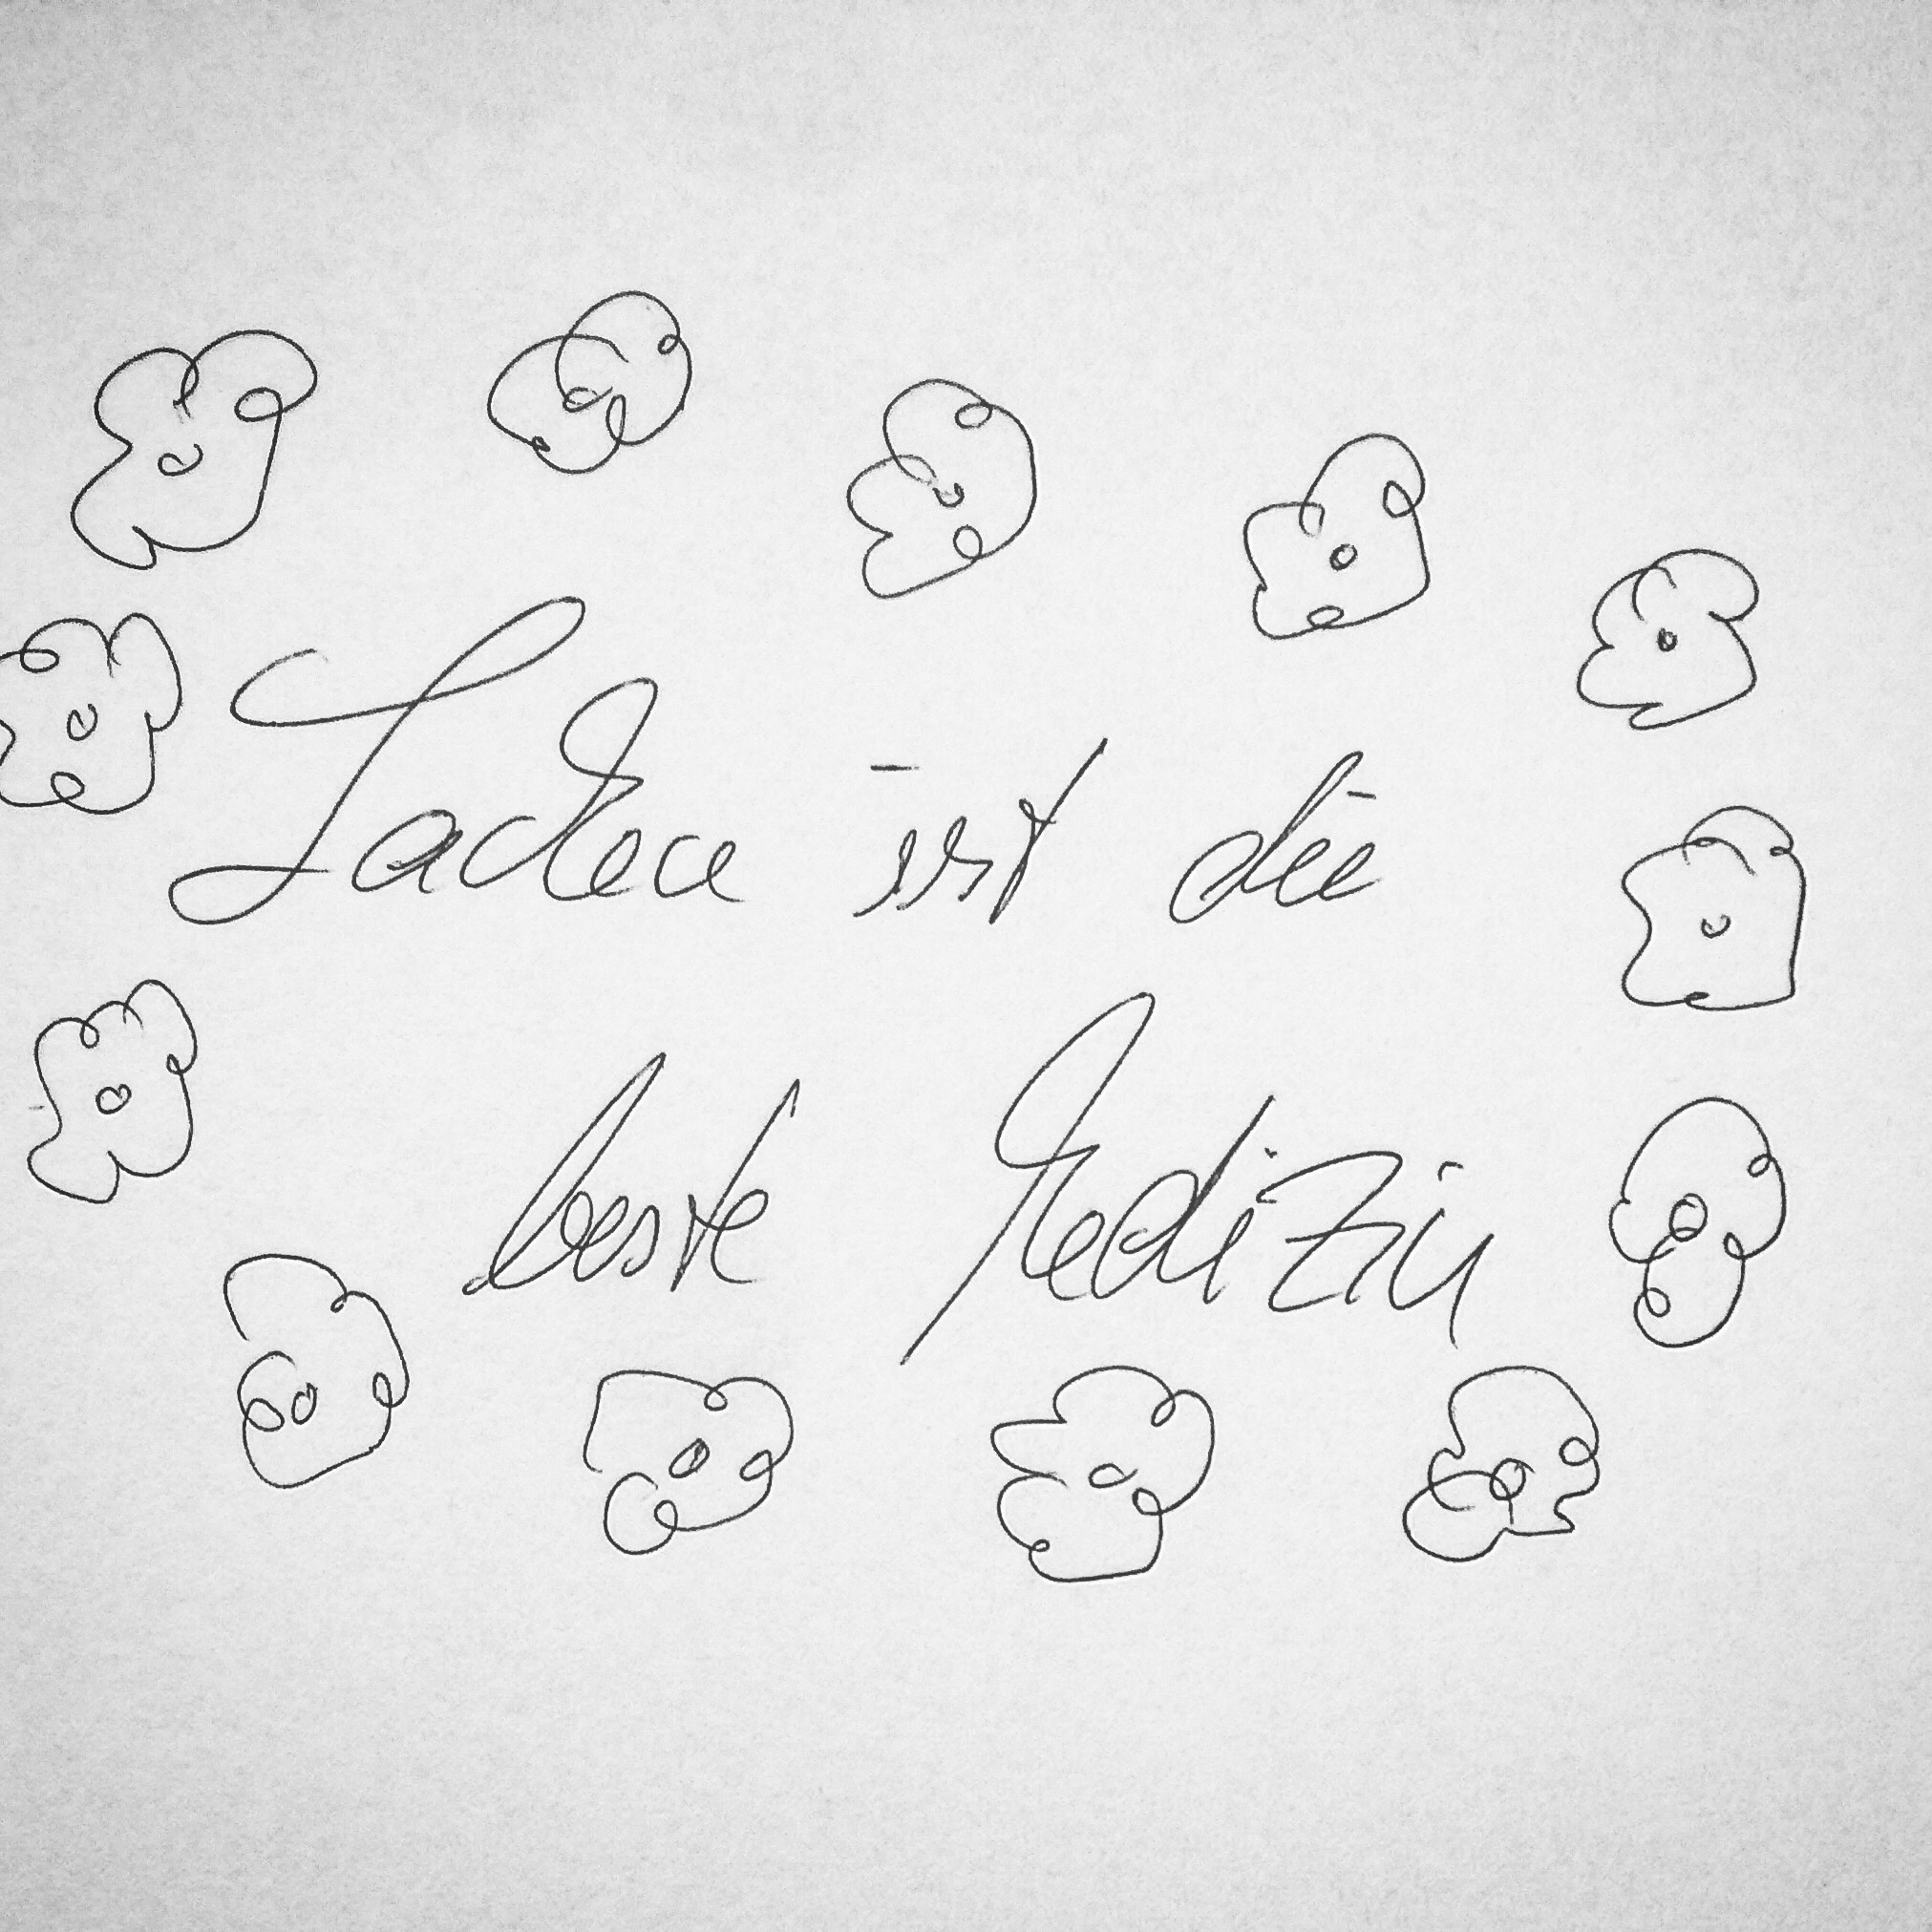 Lachen ist die
beste Medizin